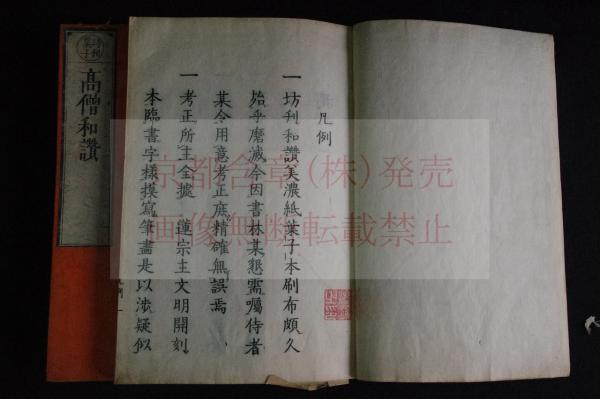 高僧和讃
凡例
一坊刋和讃美濃紙葉子本刷布頗久
殆乎磨滅今因書林某懇需囑侍者
某令用意考正庶精確無誤焉
一考正所主全據 蓮宗主文明開刻
本臨書字樣摸寫筆畫是以渉疑似
京都合章(株)発売
画像無断転載禁止